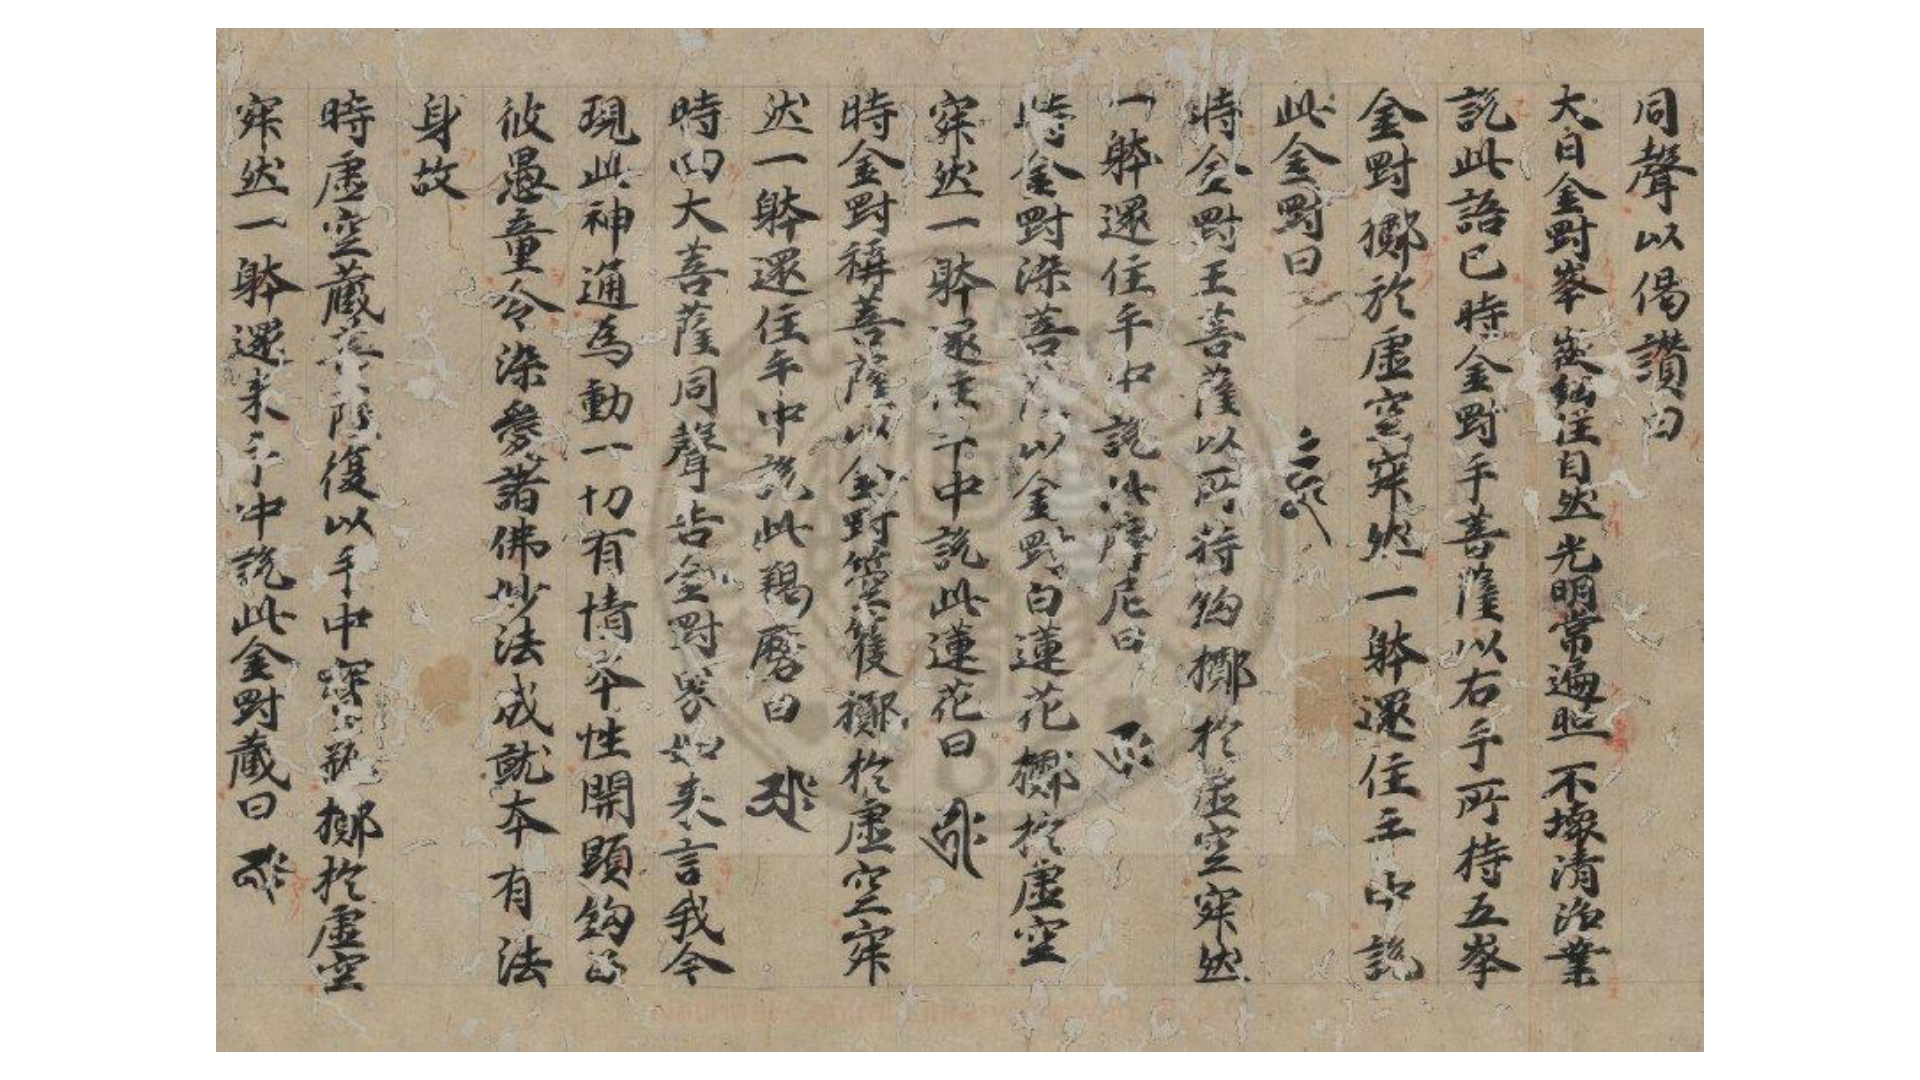 同聲以偈讚曰
大自金剛峯 住自然光明常遍照 不壞清淨業
說此語已時金剛手菩薩以右手所持五峯
金剛擲於虛空窣然一躰還住手中說
此金剛曰
時金剛王菩薩以所持鈎擲於虛空窣然
一躰還住手中說此陀羅尼曰
時金剛染菩薩以金剛白蓮花擲於虛空
窣然一躰還住手中說此蓮花曰
時金剛稱菩薩以金剛 擲於虛空窣
然一躰還住手中說此羯磨曰
時四大菩薩同聲告金剛界如來言我今
現此神通為動一切有情本性開顯鈎召
彼愚童令染愛諸佛妙法成就本有法
身故
時虛空藏菩薩復以手中 瓶擲於虛空
窣然一躰還來手中說此金剛藏曰